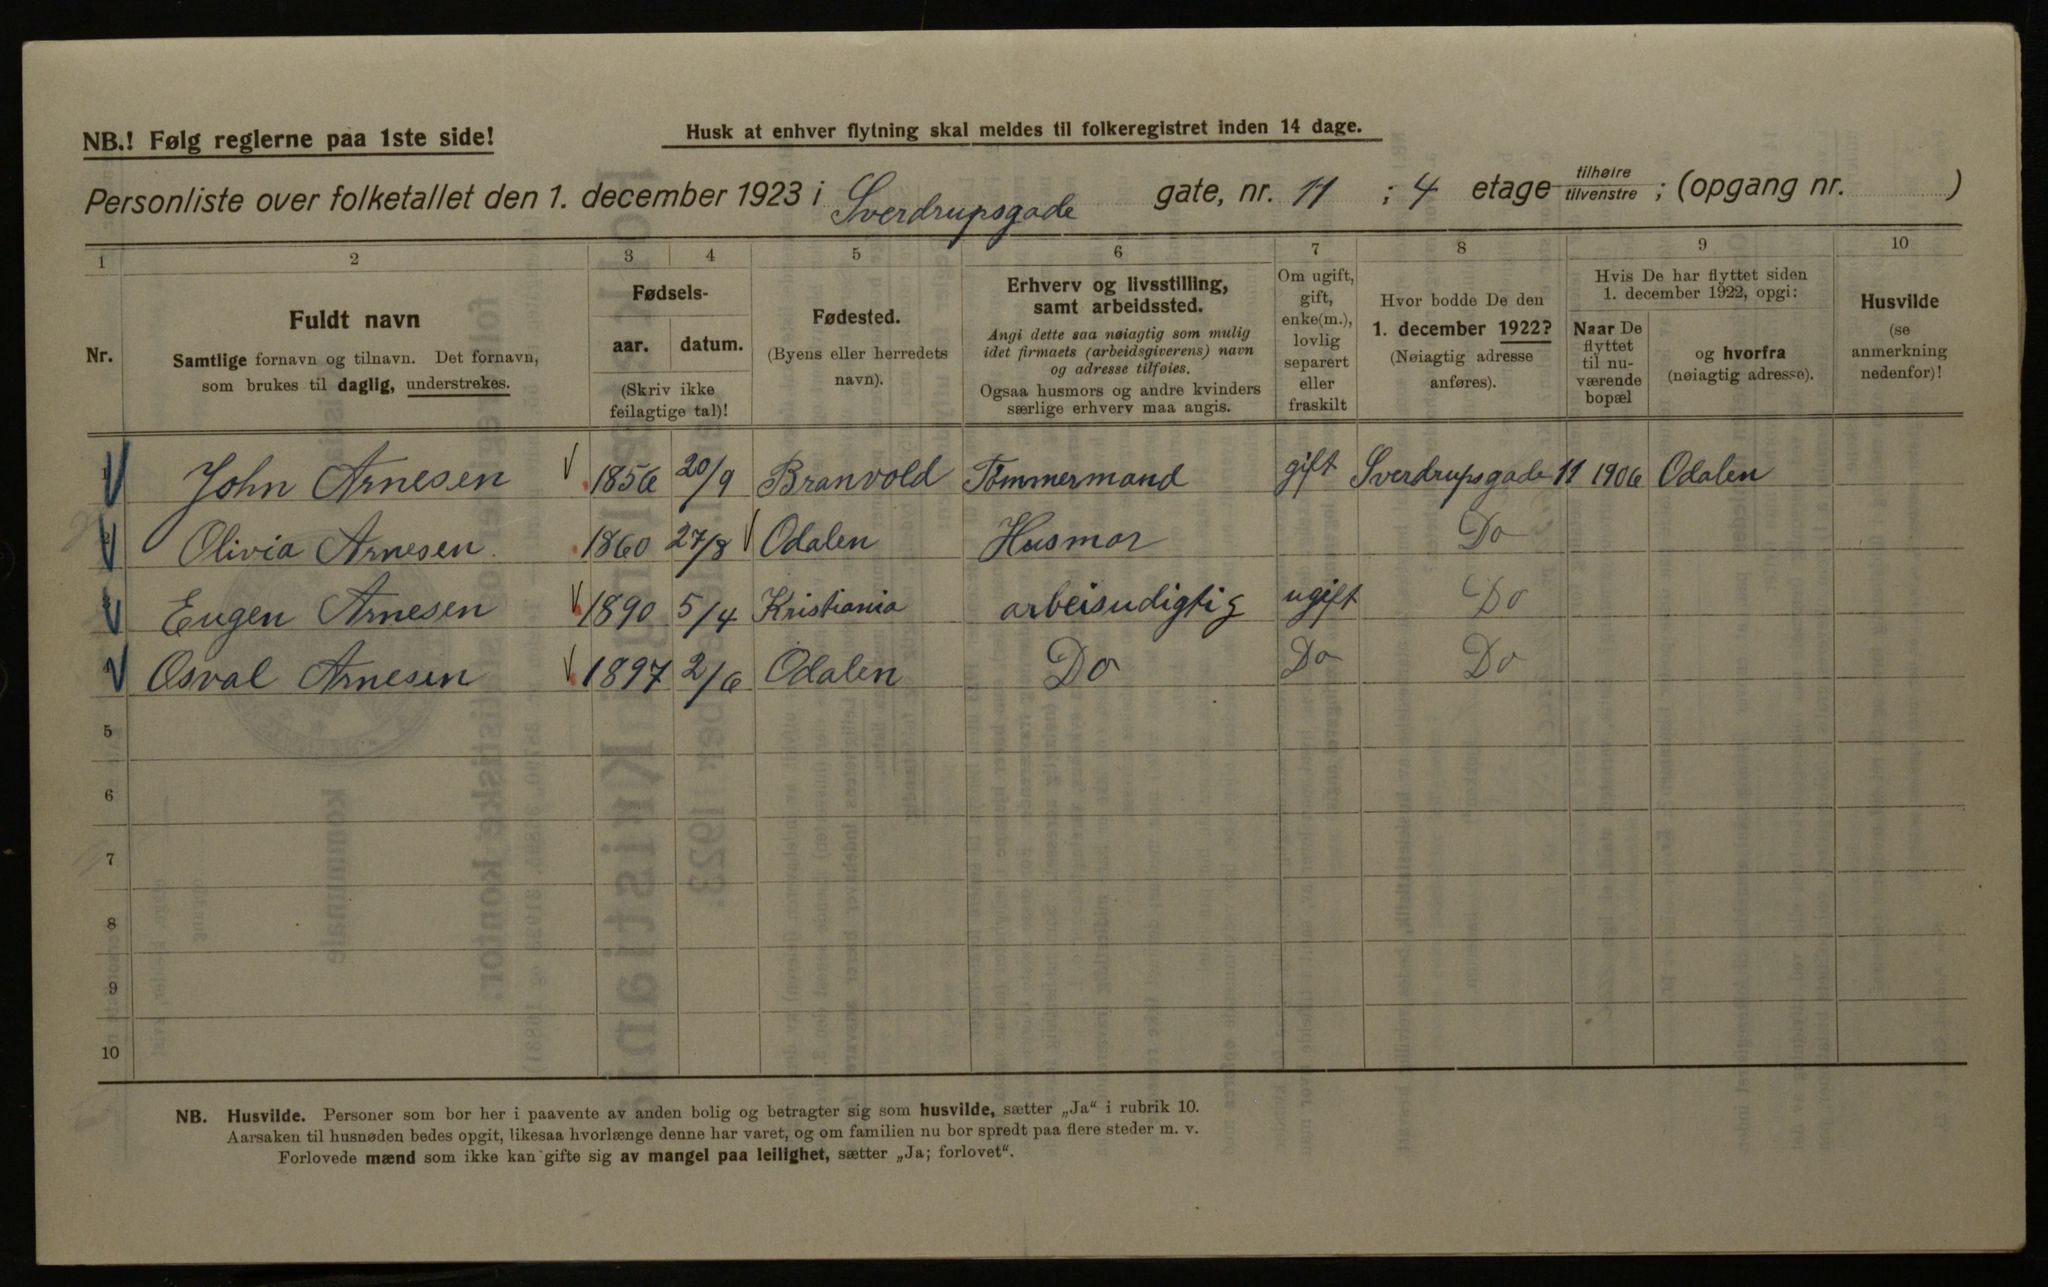 NB.! Følg reglerne paa 1ste side!
Husk at enhver flytning skal meldes til folkeregistret inden 14 dage.
Personliste over folketallet den 1. december 1923 i Sverdrupsgade gate, nr. 11 ; 4 etage tilhøire tilvenstre ; (opgang nr. )
1 2 3 4 5 6 7 8 9 10
Nr.
Fuldt navn
Samtlige fornavn og tilnavn. Det fornavn,
som brukes til daglig, understrekes.
Fødsels-
aar. datum.
(Skriv ikke
feilagtige tal)!
Fødested.
(Byens eller herredets
navn).
Erhverv og livsstilling,
samt arbeidssted.
Angi dette saa nøiagtig som mulig
idet firmaets (arbeidsgiverens) navn
og adresse tilføies.
Ogsaa husmors og andre kvinders
særlige erhverv maa angis.
Om ugift,
gift,
enke(m.),
lovlig
separert
eller
fraskilt
Hvor bodde De den
1. december 1922?
(Nøiagtig adresse
anføres).
Hvis De har flyttet siden
1. december 1922, opgi:
Naar De
flyttet
til nu-
værende
bopæl
og hvorfra
(nøiagtig adresse).
Husvilde
(se
anmerkning
nedenfor)!
1 John Arnesen 1856 20/9 Branvold Tømmermand gift Sverdrupsgade 11 1906 Odalen
2 Olivia Arnesen 1860 27/8 Odalen Husmor Do
3 Eugen Arnesen 1890 5/4 Kristiania arbeisudigtig ugift Do
4 Osval Arnesen 1897 2/6 Odalen Do Do Do
5
6
7
8
9
10
NB. Husvilde. Personer som bor her i paavente av anden bolig og betragter sig som husvilde, sætter „Ja“ i rubrik 10.
Aarsaken til husnøden bedes opgit, likesaa hvorlænge denne har varet, og om familien nu bor spredt paa flere steder m. v.
Forlovede mænd som ikke kan gifte sig av mangel paa leilighet, sætter „Ja; forlovet“.